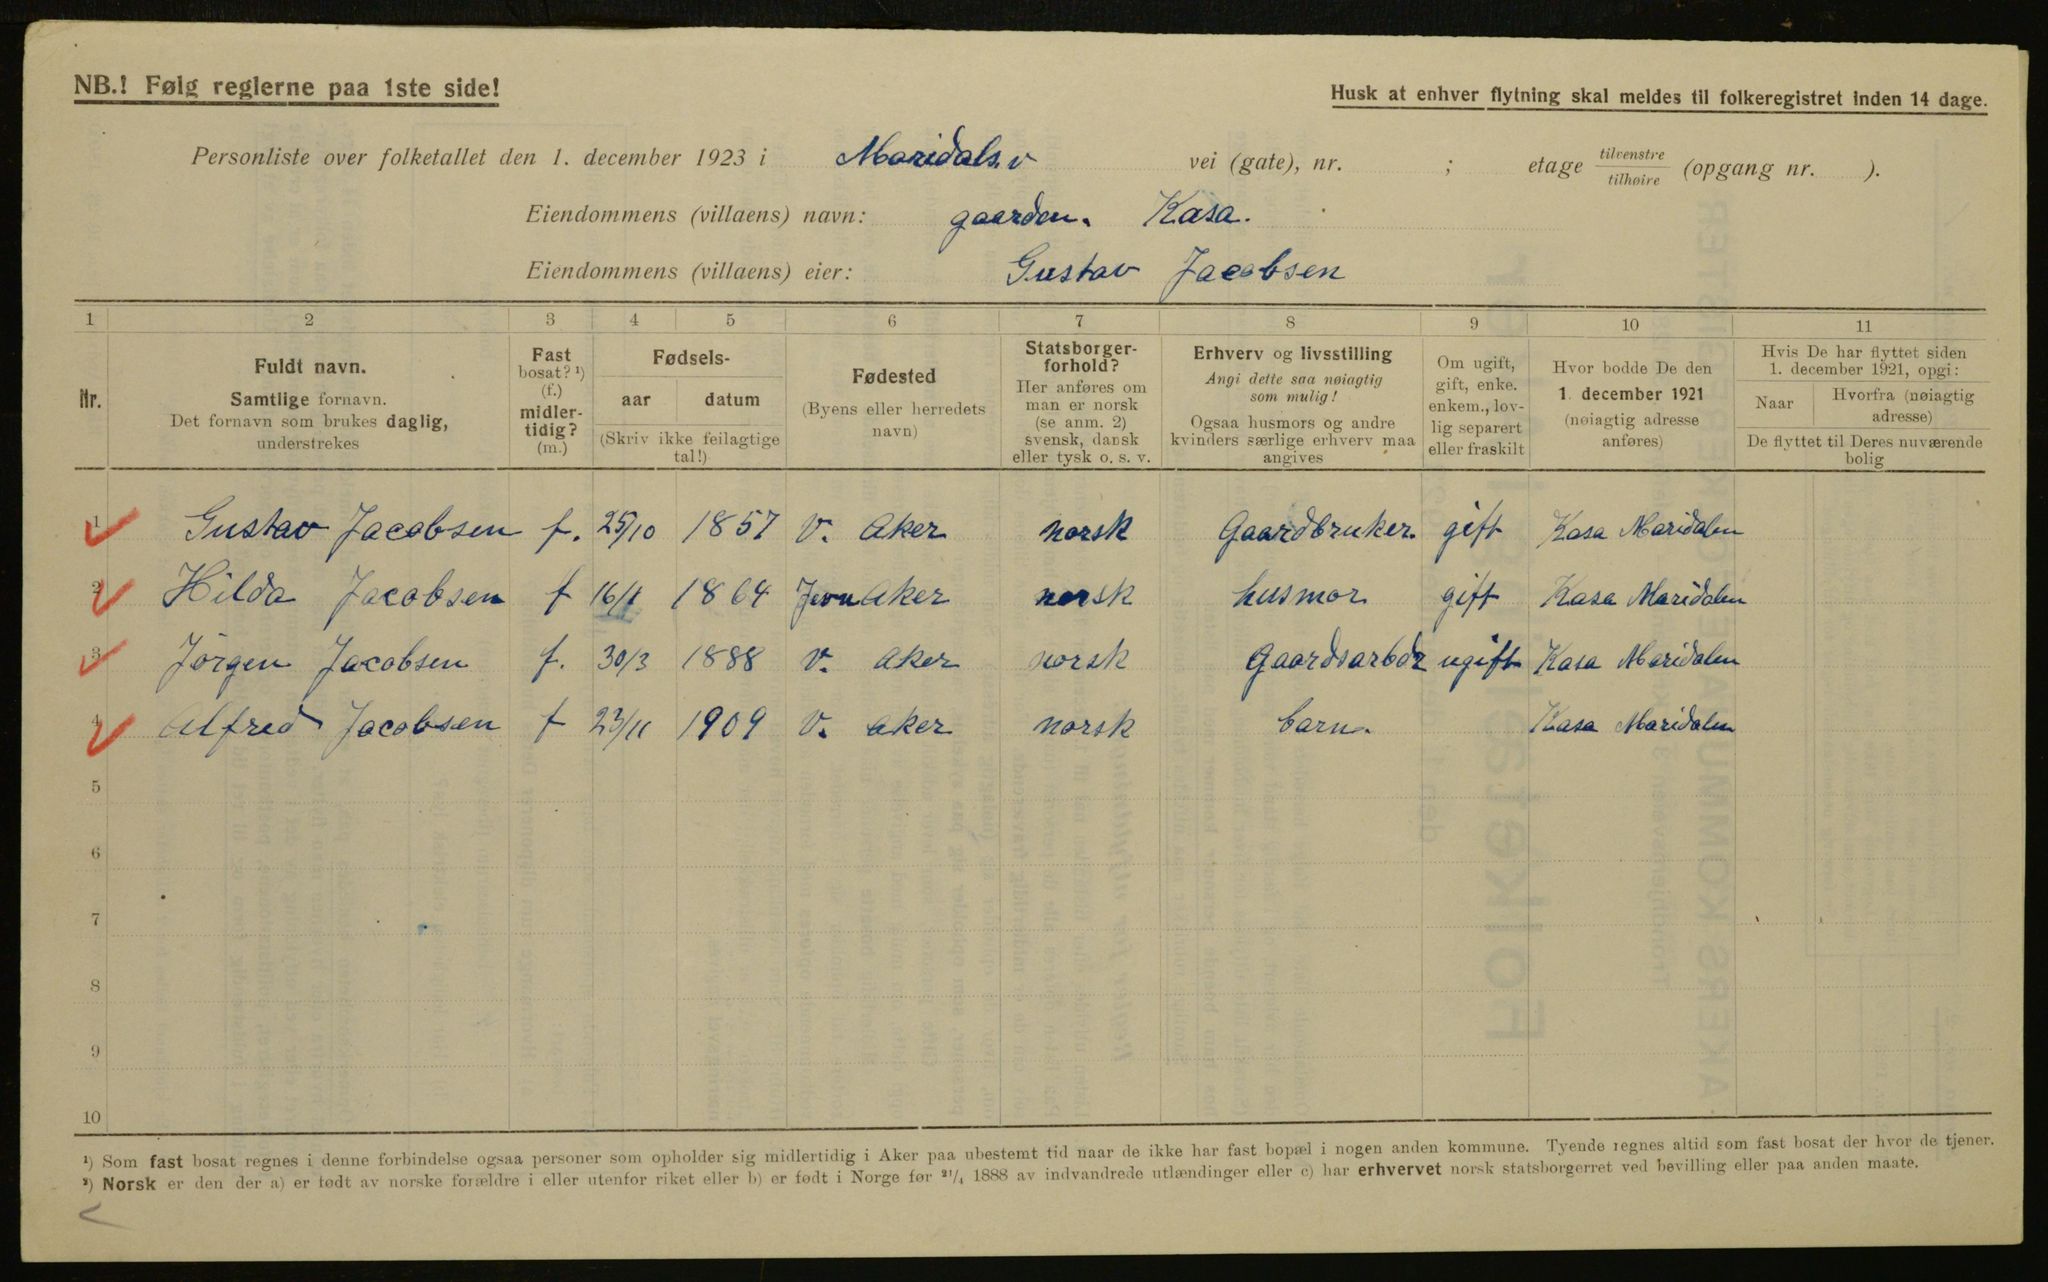 NB.! Følg reglerne paa 1ste side!
Husk at enhver flytning skal meldes til folkeregistret inden 14 dage.
Personliste over folketallet den 1. december 1923 i Maridals.v vei (gate), nr. ; etage tilvenstre/tilhøire (opgang nr. ).
Eiendommens (villaens) navn: gaarden. Kasa.
Eiendommens (villaens) eier: Gustav Jacobsen
1 2 3 4 5 6 7 8 9 10 11
Nr.
Fuldt navn.
Samtlige fornavn.
Det fornavn som brukes daglig,
understrekes
Fast
bosat? ¹)
(f.)
midler-
tidig?
(m.)
Fødsels-
aar datum
(Skriv ikke feilagtige
tal!)
Fødested
(Byens eller herredets
navn)
Statsborger-
forhold?
Her anføres om
man er norsk
(se anm. 2)
svensk, dansk
eller tysk o. s. v.
Erhverv og livsstilling
Angi dette saa nøiagtig
som mulig!
Ogsaa husmors og andre
kvinders særlige erhverv maa
angives
Om ugift,
gift, enke.
enkem., lov-
lig separert
eller fraskilt
Hvor bodde De den
1. december 1921
(nøiagtig adresse
anføres)
Hvis De har flyttet siden
1. december 1921, opgi:
Naar
Hvorfra (nøiagtig
adresse)
De flyttet til Deres nuværende
bolig
1 Gustav Jacobsen f. 25/10 1857 V. Aker norsk Gaardbruker. gift Kasa Maridalen
2 Hilda Jacobsen f 16/1 1864 Aker norsk husmor gift Kasa Maridalen
3 Jørgen Jacobsen f. 30/3 1888 V. Aker norsk Gaardsarbdr ugift Kasa Maridalen
4 Alfred Jacobsen f 23/11 1909 V. Aker norsk barn. Kasa Maridalen
5
6
7
8
9
10
¹) Som fast bosat regnes i denne forbindelse ogsaa personer som opholder sig midlertidig i Aker paa ubestemt tid naar de ikke har fast bopæl i nogen anden kommune. Tyende regnes altid som fast bosat der hvor de tjener.
²) Norsk er den der a) er født av norske forældre i eller utenfor riket eller b) er født i Norge før ²¹/₄ 1888 av indvandrede utlændinger eller c) har erhvervet norsk statsborgerret ved bevilling eller paa anden maate.